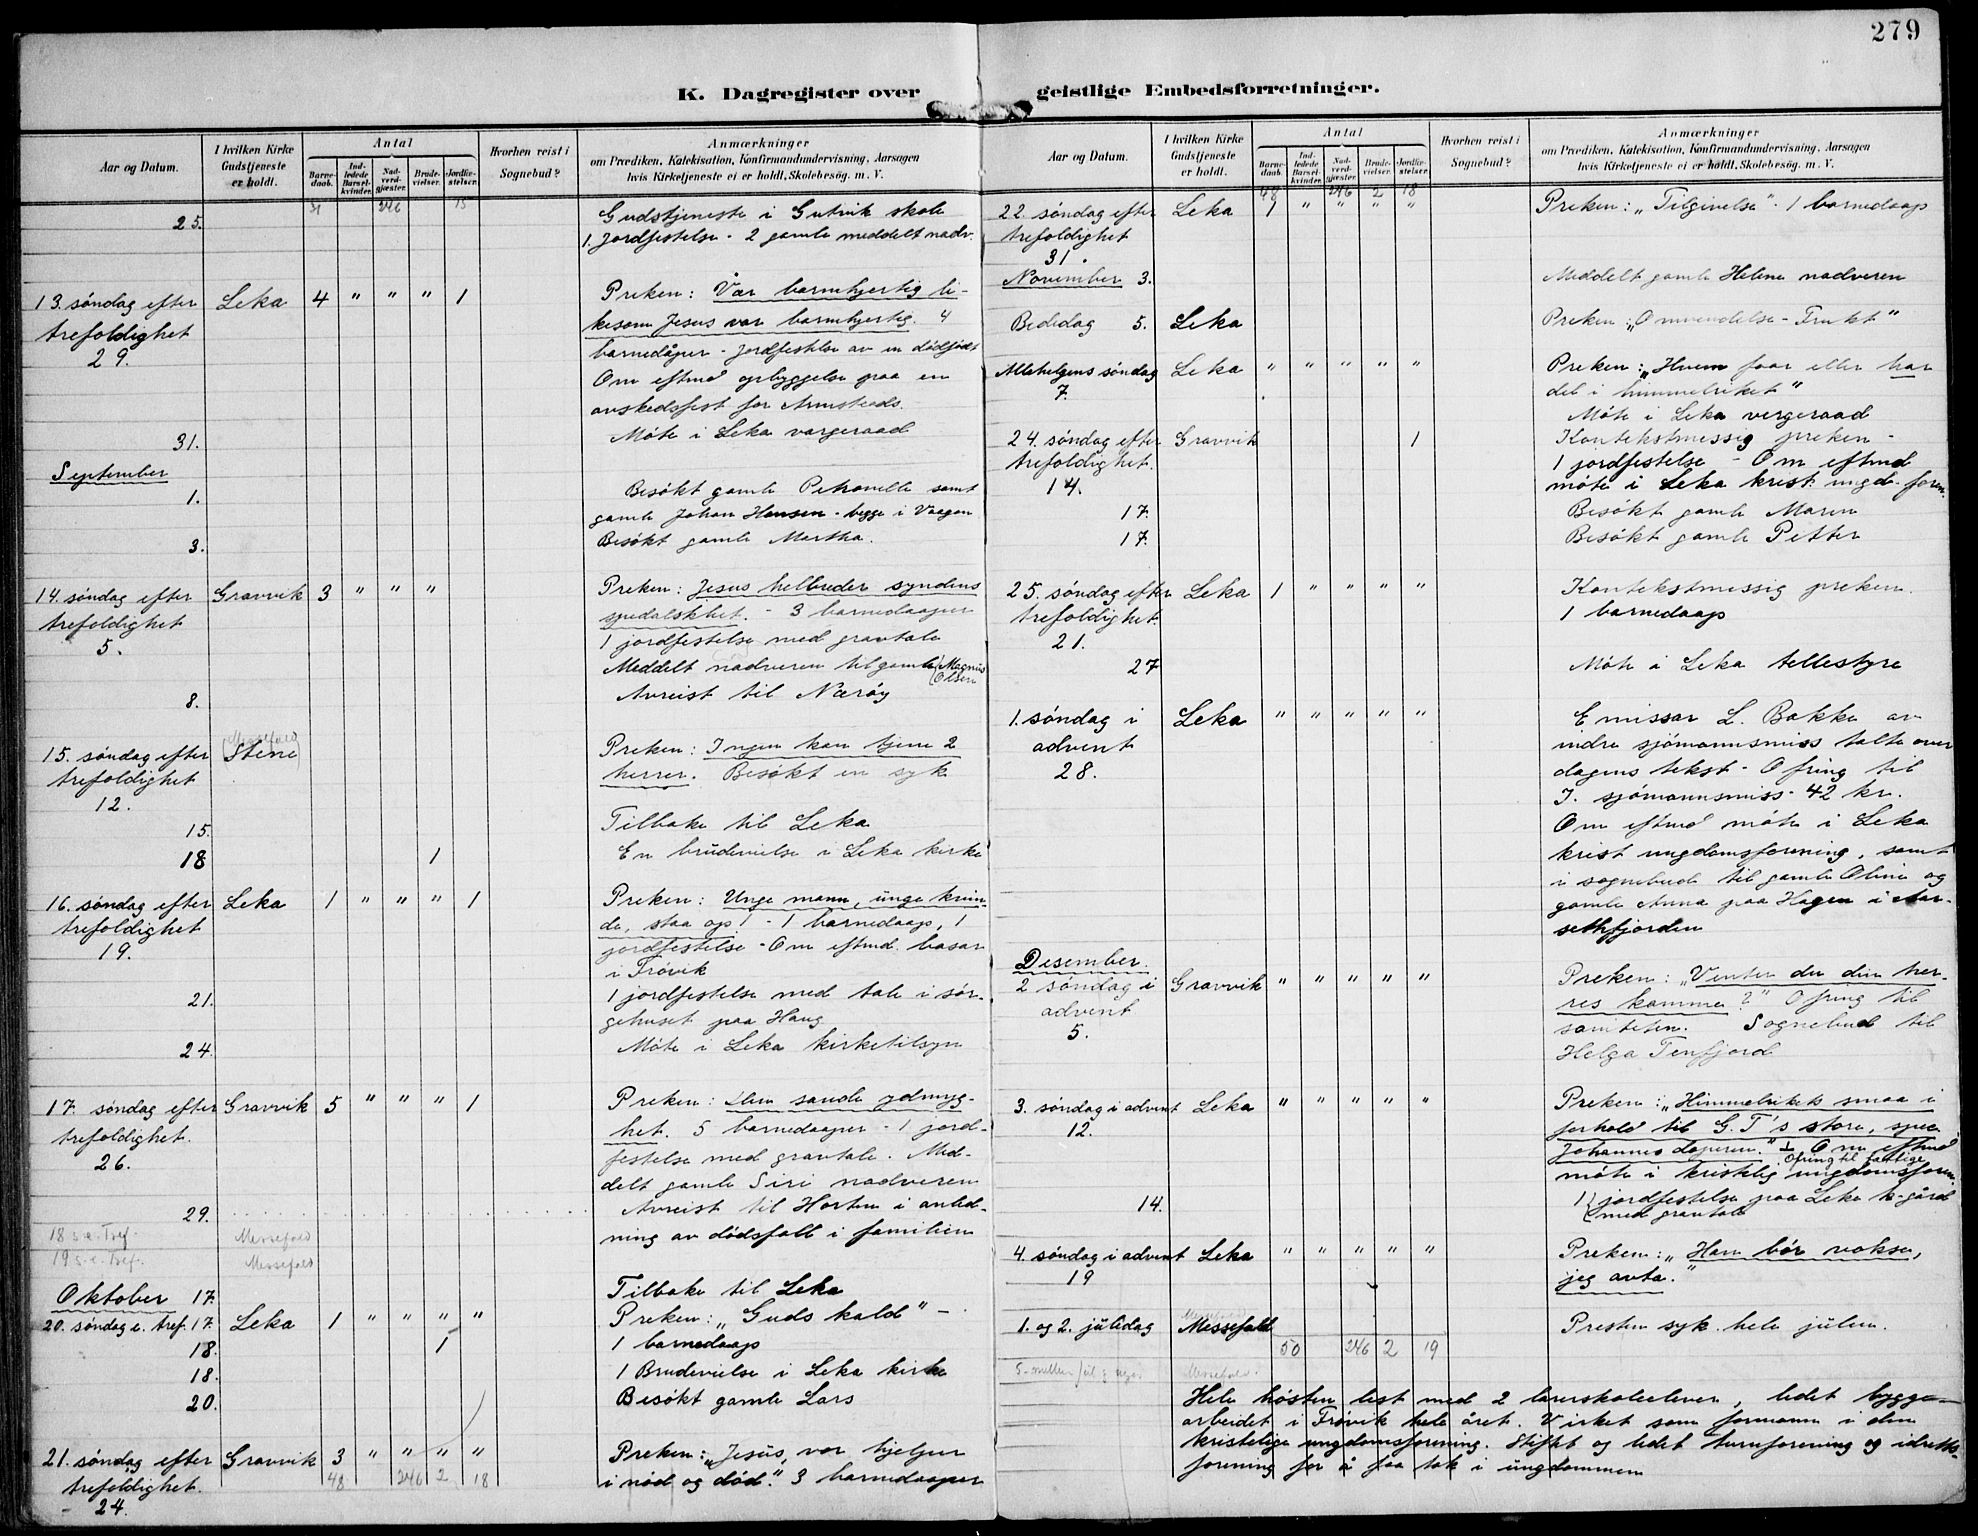 279
K. Dagregister over geistlige Embedsforretninger.
Aar og Datum. I hvilken Kirke Gudstjeneste er holdt. Antal Barnedaab. Indledede Barselkvinder. Nadverdgjæster. Brudevielser. Jordfæstelser. Hvorhen reist i Sognebud? Anmærkninger om Prædiken, Katekisation, Konfirmandundervisning, Aarsagen hvis Kirketjeneste ei er holdt, Skolebesøg. m. V.
31 246 15
25. Gudstjeneste i Gutvik skole
1. Jordfestelse - 2 gamle meddelt nadv.
13. søndag efter Leka 4 " " " 1 Preken: Vær barmhjertig li-
trefoldighet kesom Jesus var barmhjertig. 4
29. barnedåper - jordfestelse av en dødfødt
Om eftmd opbyggelse paa en
avskedsfest for Armsteads.
31. Møte i Leka vergeraad
September
1. Besøkt gamle Petronelle samt
gamle Johan Hansen - begge i Vaagan
3. Besøkt gamle Martha.
14. søndag efter Gravvik 3 " " " Preken: Jesus helbreder syndens
trefoldighet spedalskhet. - 3 barnedaaper
5. 1 jordfestelse med gravtale
Meddelt nadveren til gamle (Magnus Olsen
8. Avreist til Nærøy
15. søndag efter (Messefald Stene) Preken: Ingen kan tjene 2
trefoldighet herrer. Besøkt en syk
12.
15. Tilbake til Leka
18 1 En brudevielse i Leka kirke
16. søndag efter Leka 1 " " " 1 Preken: Unge mann, unge kvin-
trefoldighet de, staa op! - 1 barnedaap, 1
19. jordfestelse - Om eftmd. basar
i Frøvik
21. 1 jordfestelse med tale i sør-
gehuset paa Haug
24. Møte i Leka kirketilsyn
17. søndag efter Gravvik 5 " " " 1 Preken: Den sande ydmyg-
trefoldighet. het. 5 barnedaaper - 1 jord-
26. festelse med gravtale. Med-
delt gamle Siri nadveren
29. Avreist til Horten i anled-
18 s. e. Tref. Messefald ning av dødsfall i familien
19 s. e. Tref. Messefald
Oktober 17. Tilbake til Leka
20. søndag e. tref. 17. Leka 1 " " " " Preken: „Guds kald" -
18. 1 1 barnedaap
18. 1 Brudevielse i Leka kirke
20. Besøkt gamle Lars
21. søndag efter Gravvik 3 " " " " Preken: „Jesus, vor hjelper
trefoldighet. 48 246 2 18 i nød og død." 3 barnedaaper
24.
Aar og Datum. I hvilken Kirke Gudstjeneste er holdt. Antal Barnedaab. Indledede Barselkvinder. Nadverdgjæster. Brudevielser. Jordfæstelser. Hvorhen reist i Sognebud? Anmærkninger om Prædiken, Katekisation, Konfirmandundervisning, Aarsagen hvis Kirketjeneste ei er holdt, Skolebesög. m. V.
48 246 2 18
22. søndag efter Leka 1 " " " " Preken: „Tilgivelse" - 1 barnedaap
trefoldighet
31.
November 3. Meddelt gamle Helene nadveren
Bededag 5. Leka Preken: „Omvendelse - Frukt"
Allehelgens søndag Leka " " " " " Preken: „Hvem faar eller har
7. del i himmelriket"
Møte i Leka vergeraad
24. søndag efter Gravvik 1 Kontekstmessig preken -
trefoldighet. 1 jordfestelse - Om eftmd
14. møte i Leka krist. ungd. foren.
17. Besøkt gamle Maren
17. Besøkt gamle Petter
25. søndag efter Leka 1 " " " " Kontekstmessig preken.
trefoldighet. 1 barnedaap
21.
27 Møte i Leka tellestyre
1. søndag i Leka " " " " " Emissær L. Bakke av
advent indre sjømannsmiss talte over
28. dagens tekst - Ofring til
I. sjømannsmiss - 42 kr.
Om eftmd møte i Leka
krist ungdomsforening, samt
i sognebud til gamle Oline og
gamle Anna paa Hagen i Aar-
sethfjorden
Desember.
2 søndag i Gravvik " " " " " Preken: „Venter du din her-
advent res komme?" Ofring til
5. saniteten. Sognebud til
Helga Tenfjord
3. søndag i advent Leka " " " " " Preken: „Himmelrikets smaa i
12. forhold til G. T's store, spec
Johannes døperen." ⊥ Om eftmd
Ofring til fattige
møte i kristelig ungdomsforen.
14. 1 jordfestelse paa Leka k-gård
(med gravtale
4. søndag i advent Leka " " " " " Preken: „Han bør vokse,
19 jeg avta."
1. og 2. juledag Messefald Presten syk hele julen.
50 246 2 19
S. mellem jul & nyaar Messefald.
Hele høsten lest med 2 lærerskoleelever, ledet bygge-
arbeidet i Frøvik hele året. Virket som formann i den
kristelige ungdomsforening. Stiftet og ledet turnforening og idretts-
forening for å faa tak i ungdommen